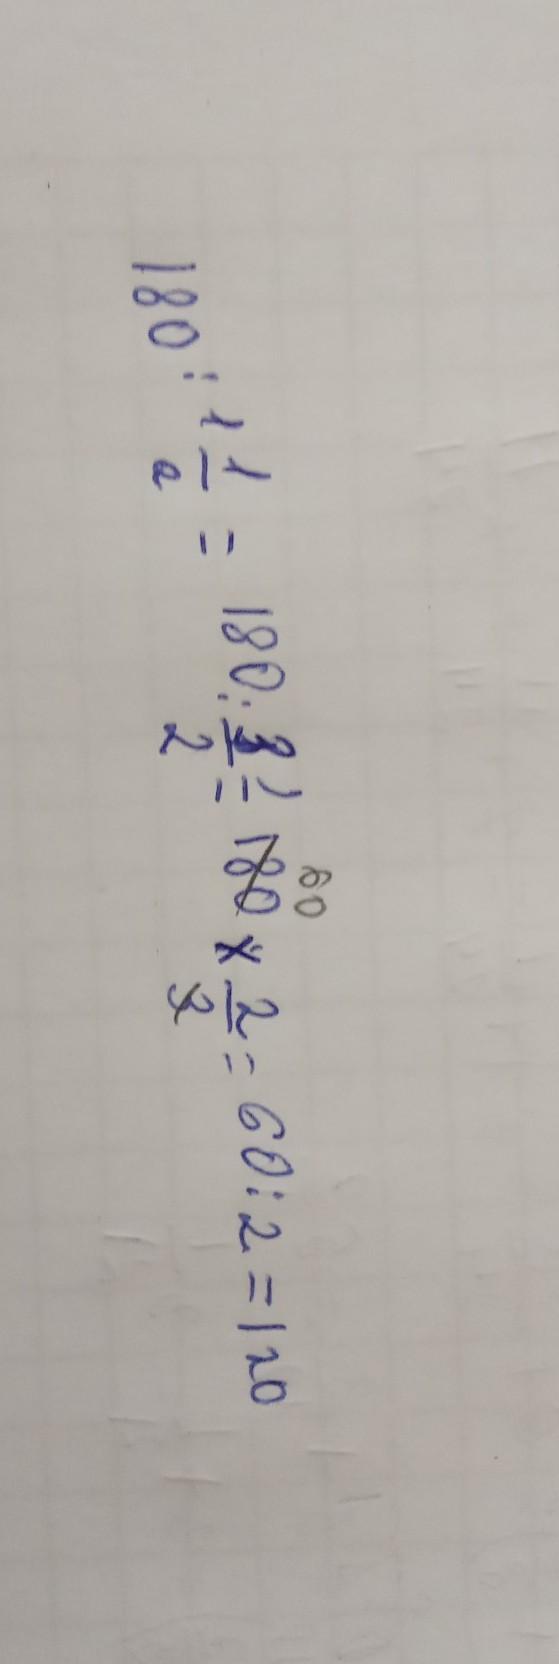 180 : 1 1/2 = 180 : 3/2 = 180 × 2/3 = 60 : 2 = 120
60